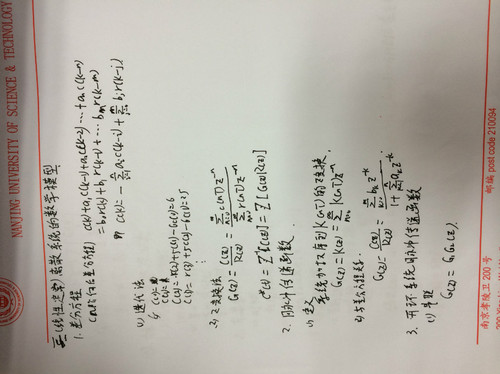 NANJING UNIVERSITY OF SCIENCE & TECHNOLOGY
三、(线性定常)离散系统的数学模型
1. 差分方程
(n阶后向差分方程) c(k)+a₁c(k-1)+a₂c(k-2)…+aₙc(k-n)
=b₀r(k)+b₁r(k-1)+…bₘr(k-m)
即 c(k)=-∑ᵢ₌₁ⁿaᵢc(k-i)+∑ⱼ₌₀ᵐbⱼr(k-j)
(1) 迭代法
C(2)=r(2)+5c(1)-6c(0)=6
C(3)=r(3)+5c(2)-6c(1)=25
⋮
(2) Z变换法
G(z)=C(z)/R(z)=∑ₙ₌₀^∞c(nT)z⁻ⁿ/∑ₙ₌₀^∞r(nT)z⁻ⁿ
c*(t)=Z⁻¹[C(z)]=Z[G(z)R(z)]
2. 脉冲传递函数.
(1) 定义
系统加权序列K(nT)的Z变换.
G(z)=K(z)=∑ₙ₌₀^∞K(nT)z⁻ⁿ
(2) 与差分方程关系.
G(z)=C(z)/R(z)=∑ₖ₌₀ᵐbₖz⁻ᵏ/1+∑ₖ₌₁ⁿaₖz⁻ᵏ
3. 开环系统脉冲传递函数
(1) 串联
G(z)=G₁G₂(z).
南京孝陵卫 200 号
邮编 post code 210094